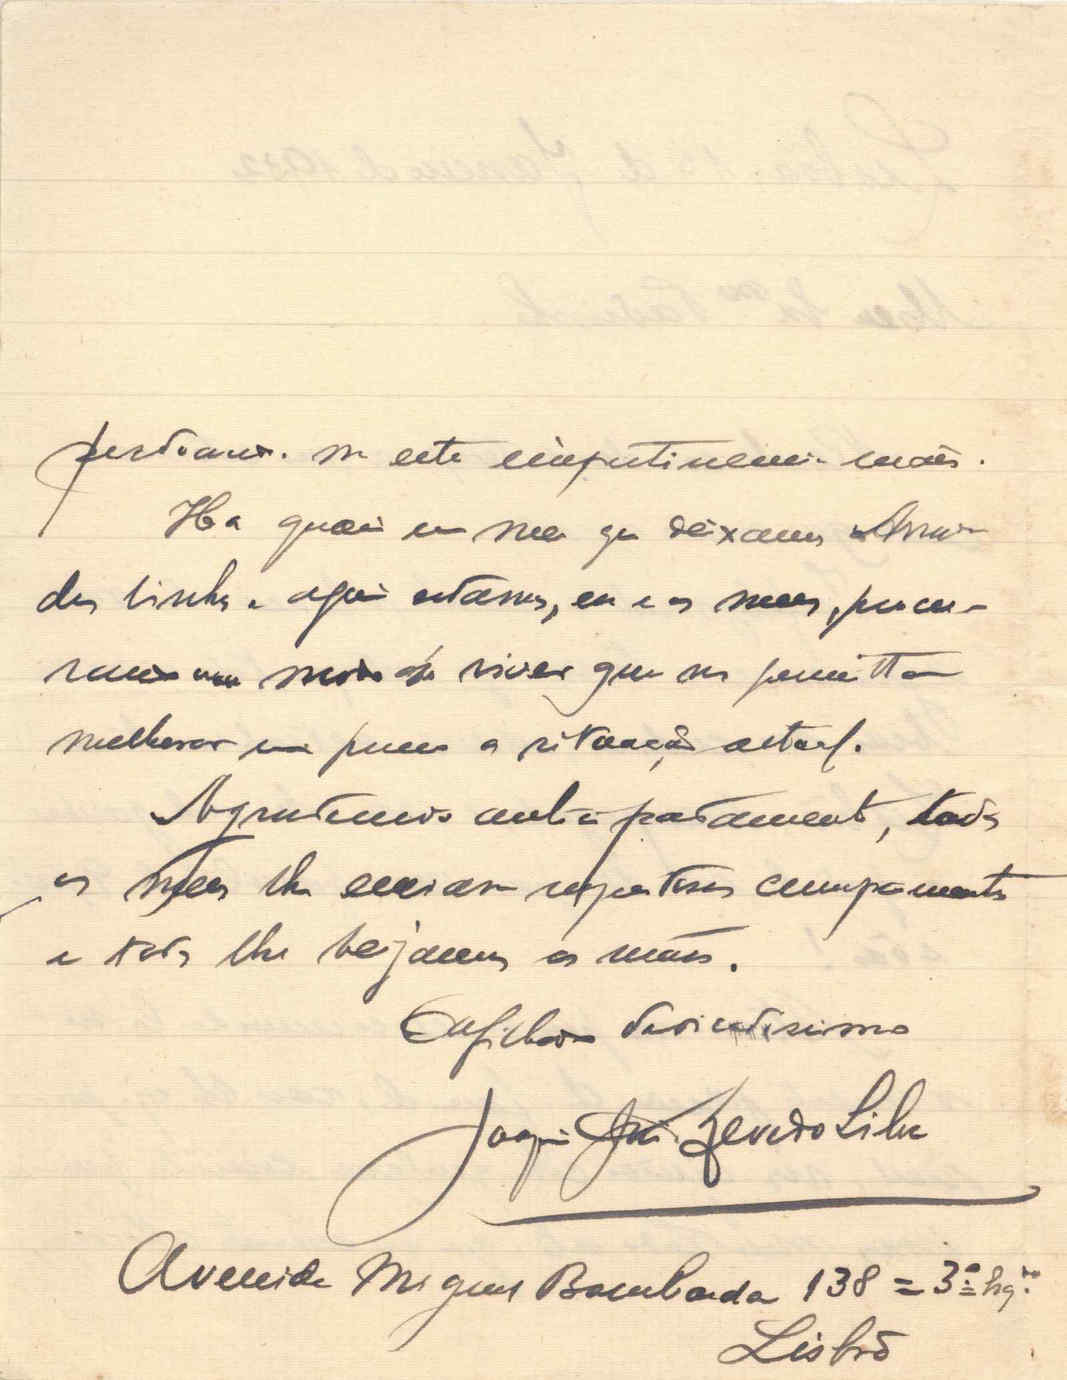 perdoam-me esta impertinencia mais.
Ha quasi um mez que deixamos Arruda
dos Vinhos e aqui estamos, eu e os meus, procu-
rando um modo de viver que nos permitta
melhorar um pouco a situação actual.
Agradecendo antecipadamente, todos
os meus lhe enviam respeitosos cumprimentos
e todos lhe beijamos as mãos.
Afilhado
Joaquim José Azevedo Silva
Avenida Miguel Bombarda 138 = 3º
Lisbôa